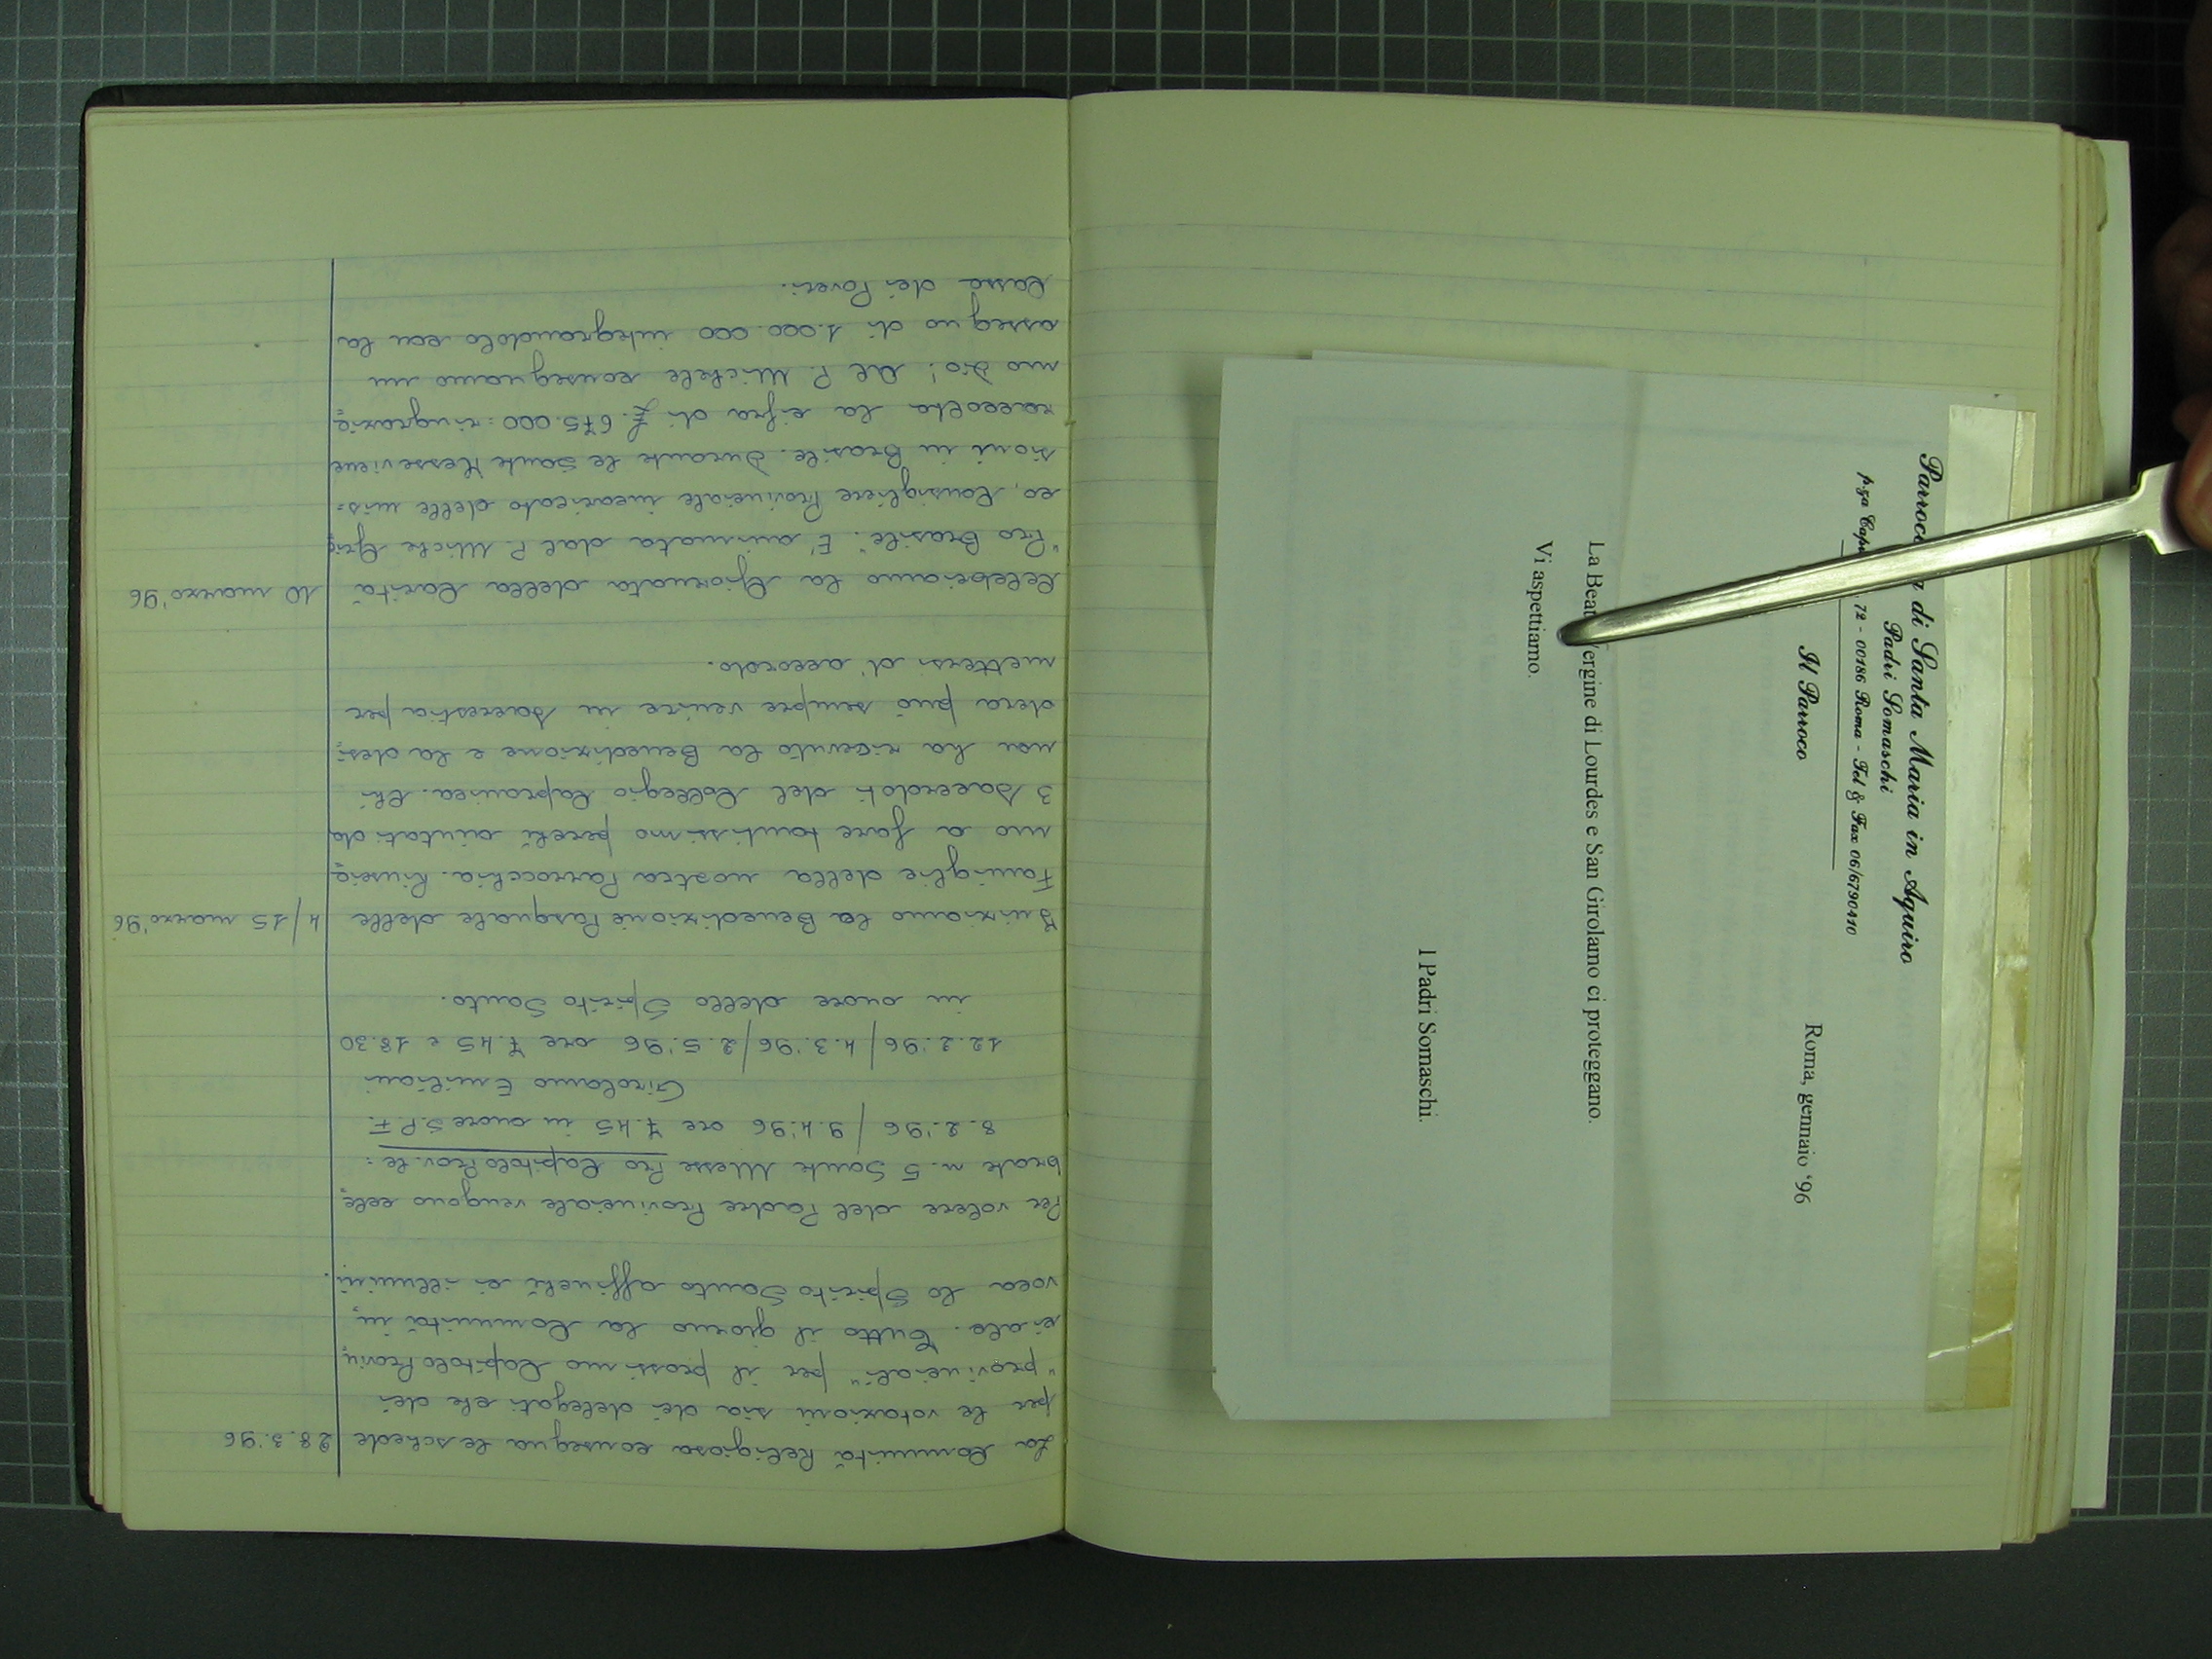 Parrocchia di Santa Maria in Aquiro
Padri Somaschi
72 - 00186 Roma - Tel & Fax 06/6790410
Il Parroco
Roma, gennaio '96
La Beata Vergine di Lourdes e San Girolamo ci proteggano.
Vi aspettiamo.
I Padri Somaschi.
La Comunità Religiosa consegna le schede 28.3.'96
per le votazioni sia dei delegati che dei
"provinciali" per il prossimo Capitolo Provin
ciale. Tutto il giorno la Comunità in
voca lo Spirito Santo affinché ci illumini.
Per volere del Padre Provinciale vengono cele
brate n. 5 Sante Messe Pro Capitolo Prov.le:
8.2.'96 / 9.4.'96 ore 7.45 in onore S.P.F.
Girolamo Emiliani
12.2.'96 / 4.3.'96 / 2.5.'96 ore 7.45 e 18.30
in onore dello Spirito Santo.
Iniziamo la Benedizione Pasquale delle 4/15 marzo '96
Famiglie della nostra Parrocchia. Riuscia
mo a fare tantissimo perché aiutati da
3 Sacerdoti del Collegio Capranica. Chi
non ha ricevuto la Benedizione e la desi
dera può sempre venire in Sacrestia per
mettersi d'accordo.
Celebriamo la Giornata della Carità 10 marzo '96
"Pro Brasile". E' animata dal P. Michele Grig
co, Consigliere Provinciale incaricato delle mis=
sioni in Brasile. Durante le Sante Messe viene
raccolta la cifra di £. 675.000: ringrazia
mo Dio! Al P. Michele consegnamo un
assegno di 1.000.000 integrandolo con la
Cassa dei Poveri.